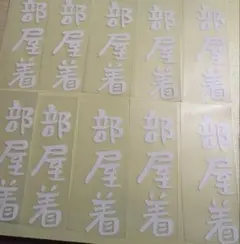 部屋着
部屋着
部屋着
部屋着
部屋着
部屋着
部屋着
部屋着
部屋着
部屋着